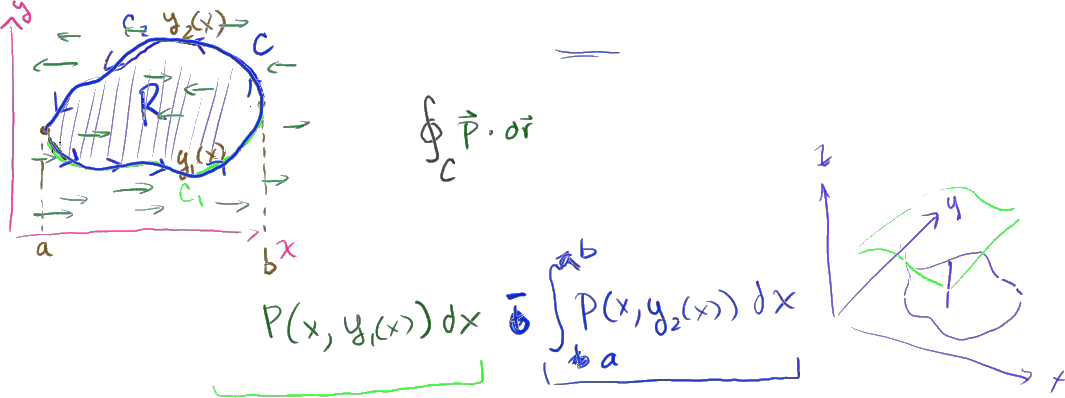 y
C₂ y₂(x) C
R
y₁(x)
C₁
a b x
∮_C P⃗ · dr⃗
P(x, y₁(x)) dx − ∫_a^b P(x, y₂(x)) dx
z
y
x